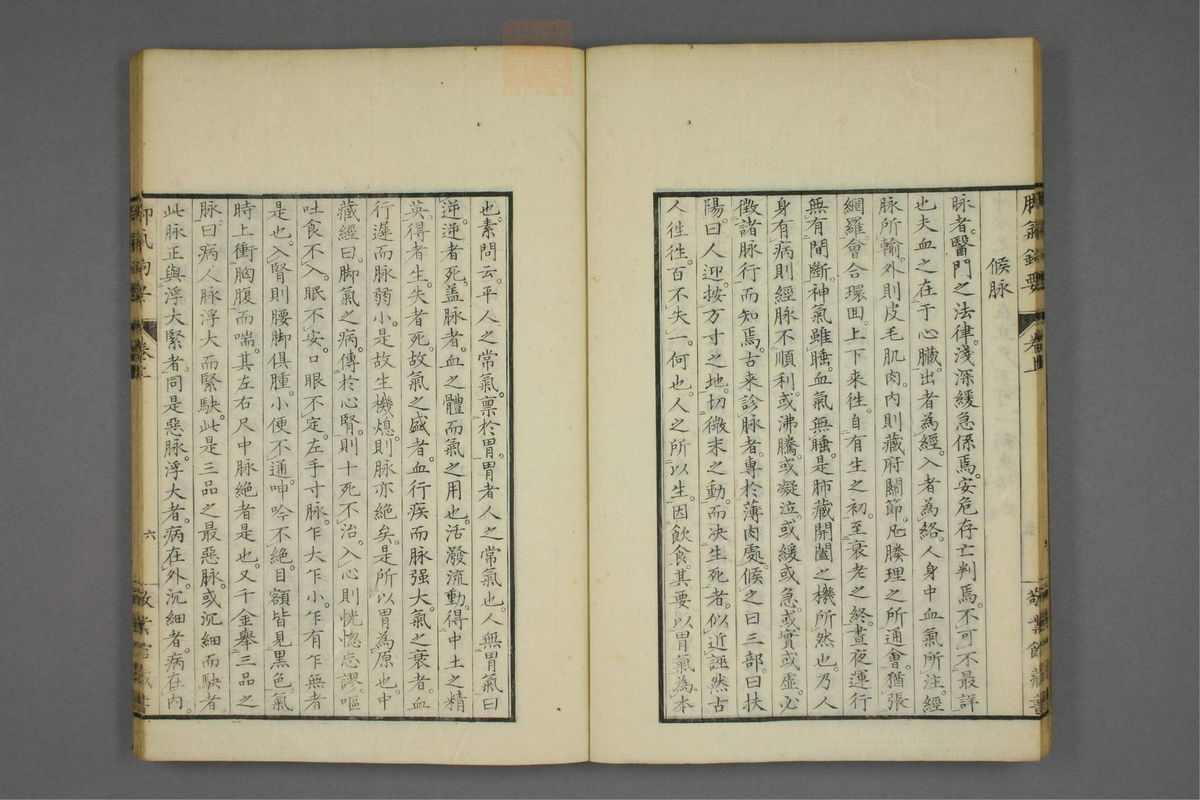 脚氣鉤要　卷上　敬業館藏書
候脉
脉者。醫門之法律。淺深緩急係焉。安危存亡判焉。不可不最詳
也。夫血之在于心臟。出者為經。入者為絡。人身中血氣所注。經
脉所輸。外則皮毛肌肉。內則藏府關節。凡腠理之所通會。猶張
網羅會合環回。上下来往。自有生之初。至衰老之終。晝夜運行
無有間斷。神氣雖睡。血氣無睡。是肺藏開闔之機所然也。乃人
身有病則經脉不順利。或沸騰。或凝泣。或緩或急。或實或虛。必
徵諸脉行而知焉。古来診脉者。專於薄肉處。候之曰三部。曰扶
陽。曰人迎。按方寸之地。切微末之動。而决生死者。似近誣然古
人徃徃百不失一。何也。人之所以生。因飲食。其要以胃氣為本
也。素問云。平人之常氣。禀於胃。胃者人之常氣也。人無胃氣曰
逆。逆者死。盖脉者。血之體而氣之用也。活潑流動。得中土之精
英。得者生。失者死。故氣之盛者。血行疾而脉强大。氣之衰者。血
行遲而脉弱小。是故生機熄。則脉亦絕矣。是所以胃為原也。中
藏經曰。脚氣之病。傳於心腎。則十死不治。入心則恍惚忘謬。嘔
吐食不入。眠不安。口眼不定。左手寸脉。乍大乍小。乍有乍無者
是也。入腎則腰脚俱腫。小便不通。呻吟不絕。目額皆見黒色。氣
時上衝胸腹而喘。其左右尺中脉絕者是也。又千金舉三品之
脉。曰病人脉浮大而緊駃。此是三品之最惡脉。或沉細而駃者。
此脉正與浮大緊者。同是惡脉。浮大者。病在外。沉細者。病在內。
脚氣鉤要　卷上　六　敬業館藏書